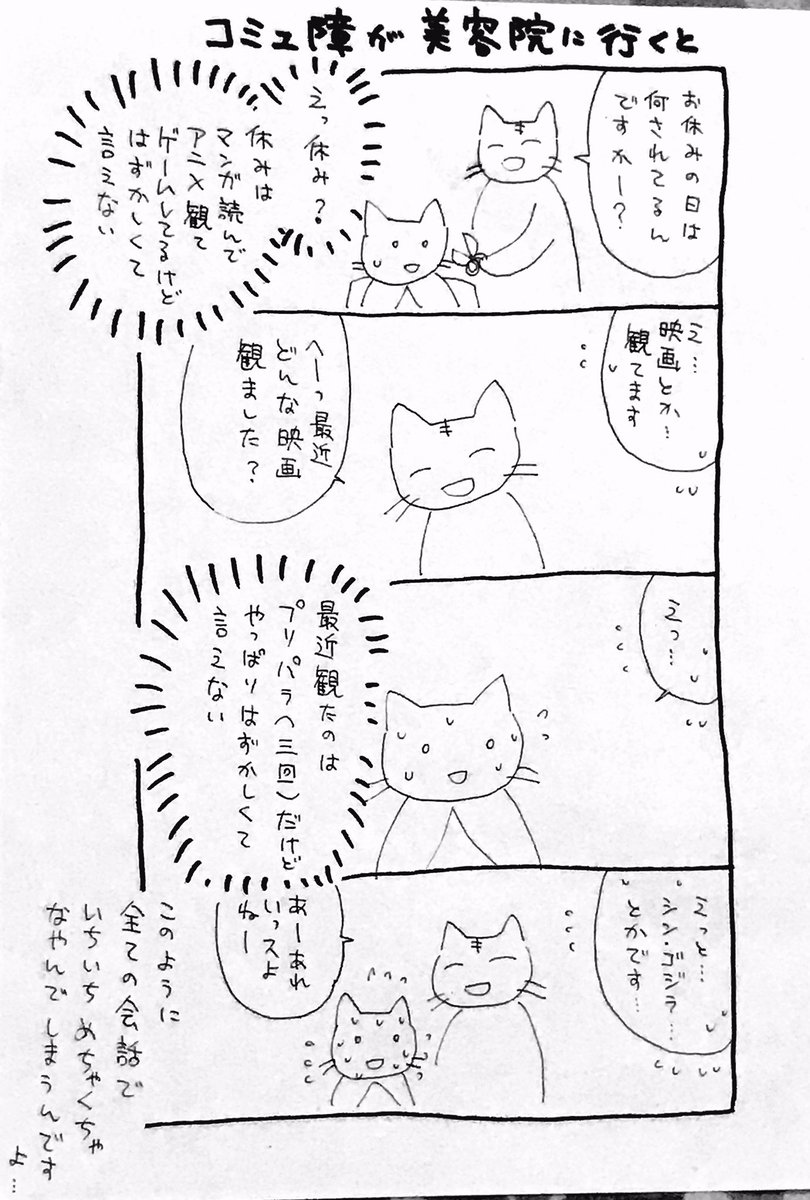 コミュ障が美容院に行くと
お休みの日は
何されてるん
ですかー?
えっ休み?
休みは
マンガ読んで
アニメ観て
ゲームしてるけど
はずかしくて
言えない
え…
映画とか…
観てます
へーっ最近
どんな映画
観ました?
えっ…
最近観たのは
プリパラ(三回)だけど
やっぱりはずかしくて
言えない
えっと…
シン・ゴジラ…
とかです…
あーあれ
いっスよ
ねー
このように
全ての会話で
いちいちめちゃくちゃ
なやんでしまうんです
よ…